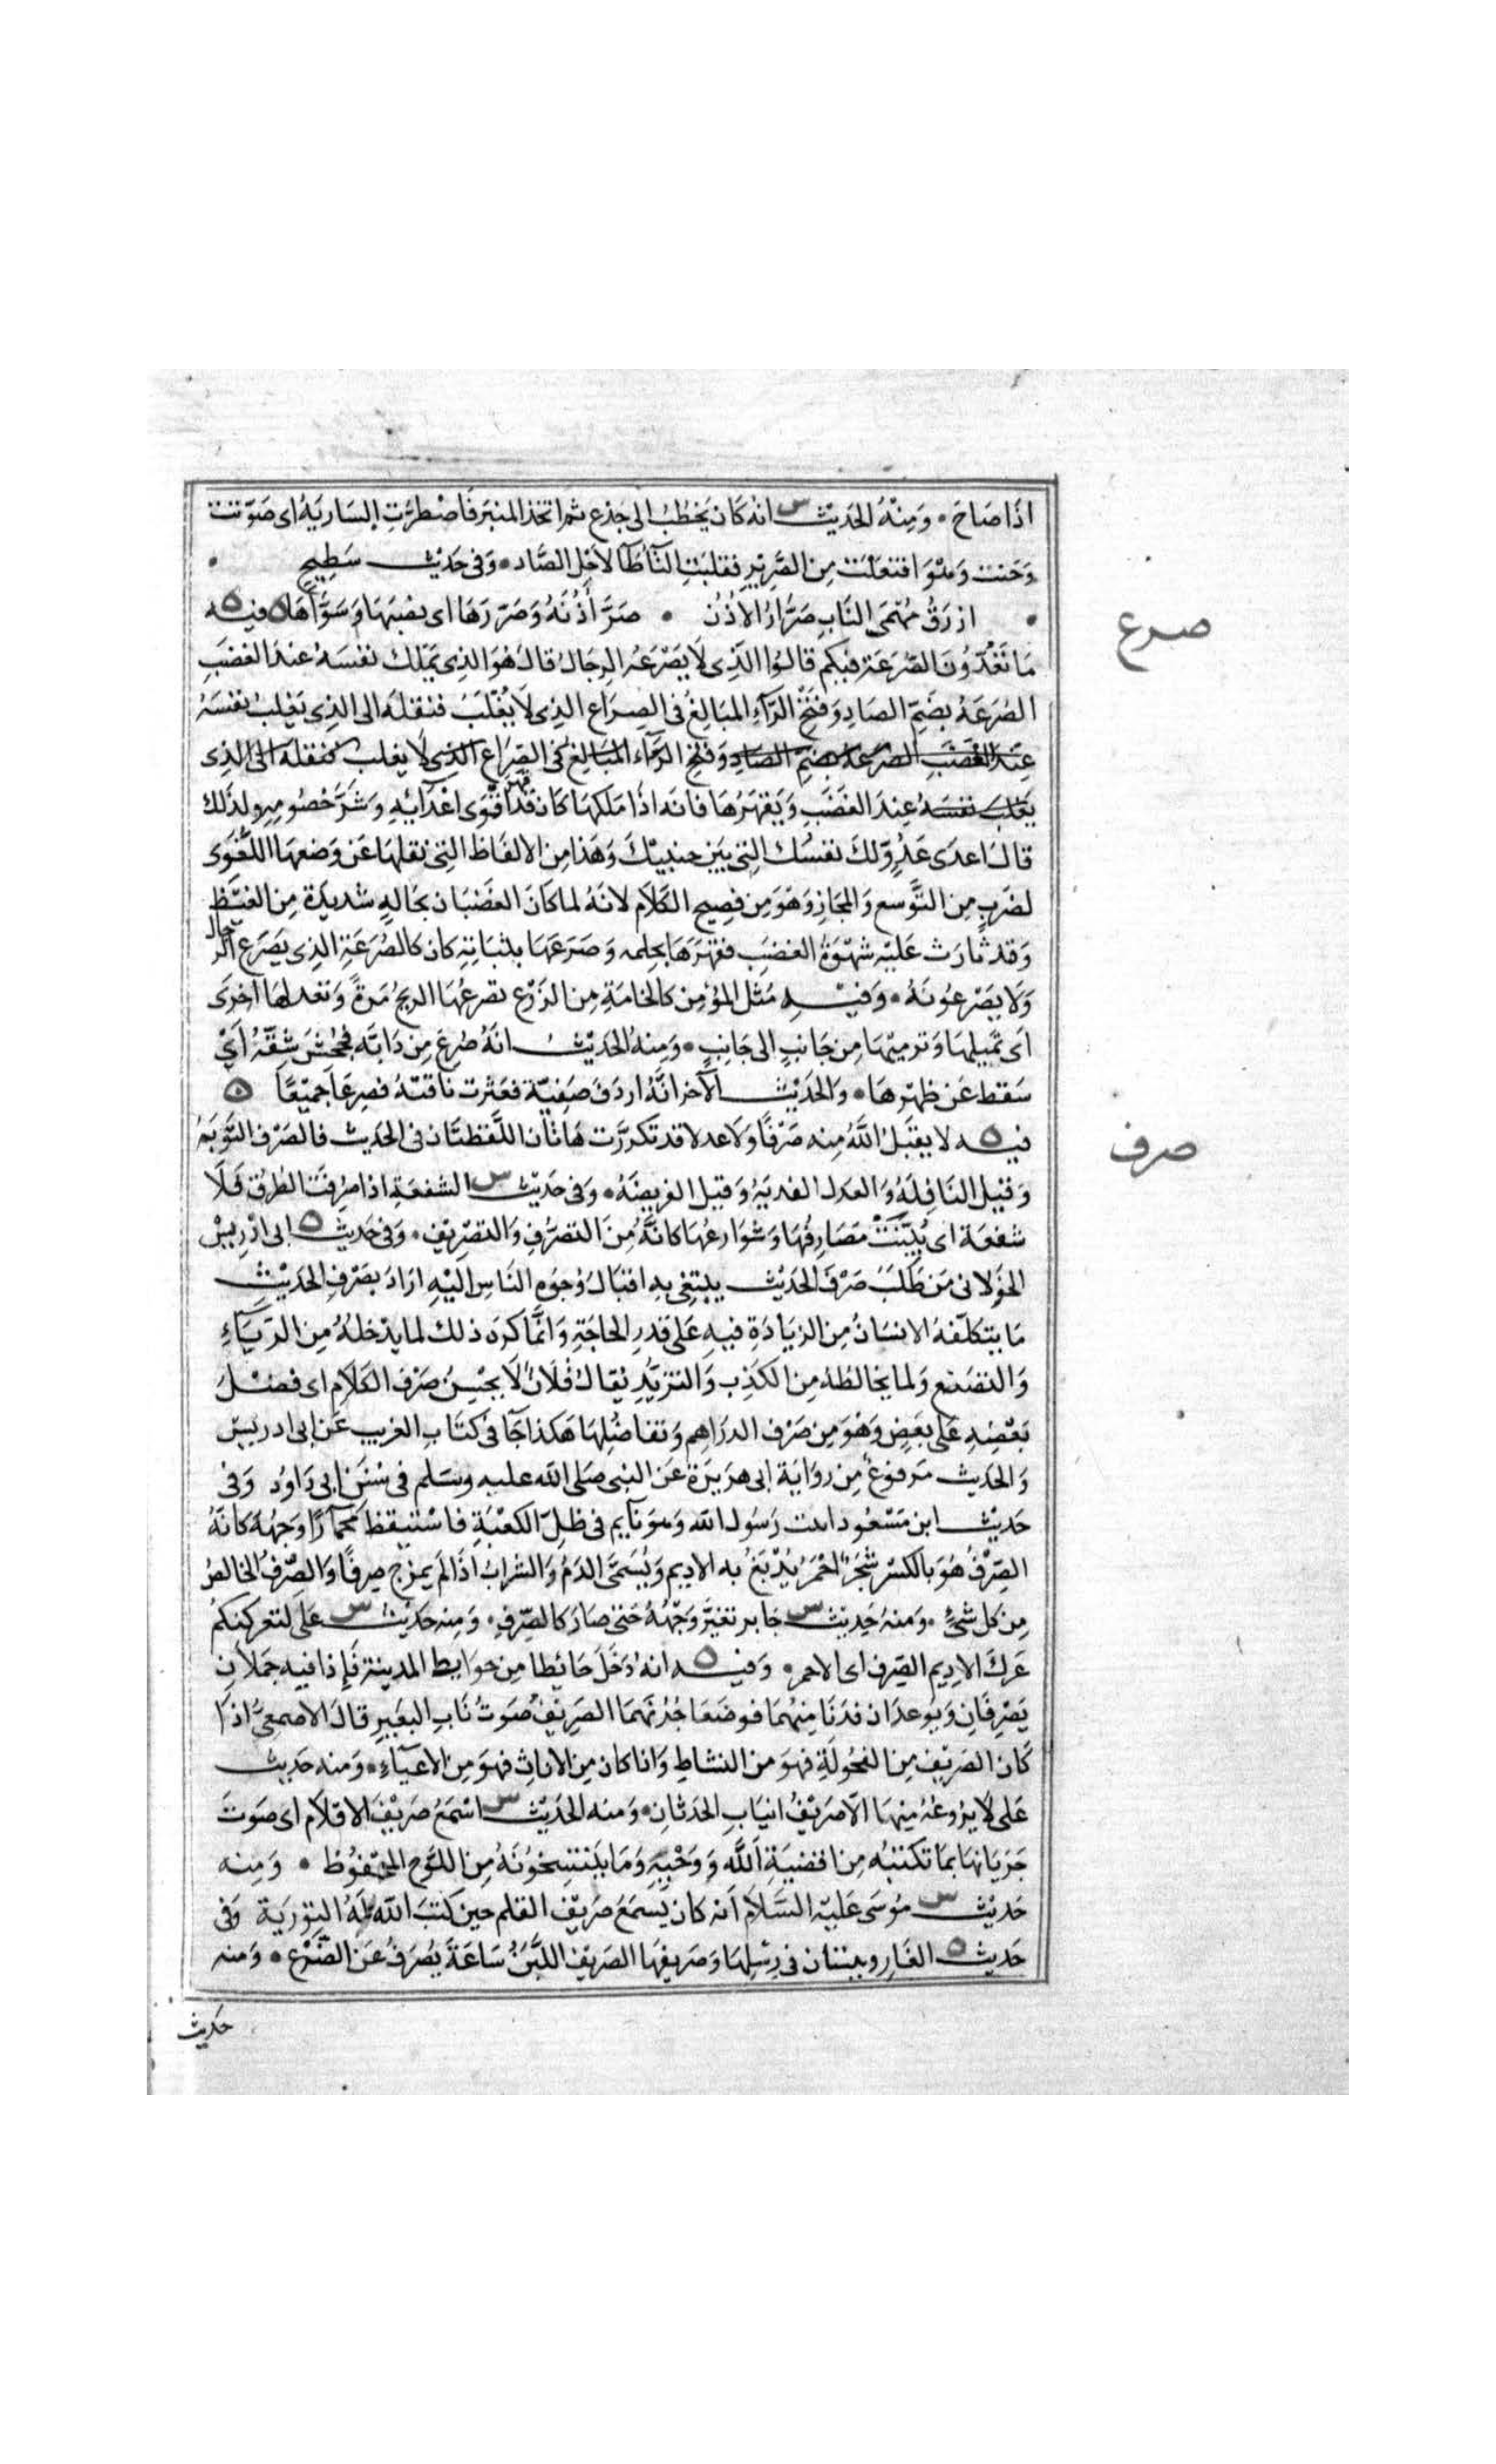 اذا صاح • ومنه الحديث س انه كان يخطب الى جذع ثم اتخذ المنبر فاضطرت السارية اى صوتت
وحنت وهو افتعلت من الصرير فقلبت التا طآ لاجل الصاد • وفى حديث سطيح •
• ازرق مهمى الناب صرار الاذن • صر أذنه وصررها اى نصبها وسواها ه فيه ه
صرع
ما تعدون الصرعة فيكم قالوا الذى لا يصرعه الرجال قال هو الذى يملك نفسه عند الغضب
الصرعة بضم الصاد وفتح الرآء المبالغ فى الصراع الذى لا يغلب فنقله الى الذى يغلب نفسه
عند الغضب الصرعة بضم الصاد وفتح الرآء المبالغ فى الصراع الذى لا يغلب فنقله الى الذى
يغلب نفسه عند الغضب ويقهرها فانه اذا ملكها كان قد قهر اقوى اعدآيه وشر خصومه ولذلك
قال اعدى عدو لك نفسك التى بين جنبيك وهذا من الالفاظ التى نقلها عن وضعها اللغوى
لضرب من التوسع والمجاز وهو من فصيح الكلام لانه لما كان الغضبان بحاله شديدة من الغيظ
وقد ثارت عليه شهوة الغضب فقهرها بحلمه وصرعها بثباته كان كالصرعة الذى يصرع الرجال
ولا يصرعونه • وفيه مثل المؤمن كالخامة من الزرع تصرعها الريح مرة وتعدلها اخرى
اى تميلها وترميها من جانب الى جانب • ومنه الحديث انه صرع من دابته فجحش شقه اى
سقط عن ظهرها • والحديث الآخر انه اردف صفية فعثرت ناقته فصرعا جميعا ه
صرف
فيه ه لا يقبل الله منه صرفا ولا عدلا قد تكررت هاتان اللفظتان فى الحديث فالصرف التوبة
وقيل النافلة والعدل الفدية وقيل الفريضة • وفى حديث س الشفعة اذا صرفت الطرق فلا
شفعة اى بينت مصارفها وشوارعها كانه من التصرف والتصريف • وفى حديث ه ابى ادريس
الخولانى من طلب صرف الحديث يبتغى به اقبال وجوه الناس اليه اراد بصرف الحديث
ما يتكلفه الانسان من الزيادة فيه على قدر الحاجة وانما كره ذلك لما يدخله من الريآء
والتصنع ولما يخالطه من الكذب والتزيد يقال فلان لا يحسن صرف الكلام اى فضل
بعضه على بعض وهو من صرف الدراهم وتفاضلها هكذا جآ فى كتاب الغريب عن ابى ادريس
والحديث مرفوع من رواية ابى هريرة عن النبى صلى الله عليه وسلم فى سنن ابى داود وفى
حديث ابن مسعود اتيت رسول الله وهو نآيم فى ظل الكعبة فاستيقظ محمارا وجهه كانه
الصرف هو بالكسر شجر احمر يدبغ به الاديم ويسمى الدم والشراب اذا لم يمزج صرفا والصرف الخالص
من كل شئ • ومنه حديث س جابر تغير وجهه حتى صار كالصرف • ومنه حديث س على لتعركنكم
عرك الاديم الصرف اى الاحمر • وفيه ه انه دخل حائطا من حوايط المدينة فاذا فيه جملان
يصرفان ويوعدان فدنا منهما فوضعا جرنهما الصريف صوت ناب البعير قال الاصمعى اذا
كان الصريف من الفحولة فهو من النشاط وانا كان من الاناث فهو من الاعيآء • ومنه حديث
على لا يروعه منها الا صريف انياب الحدثان • ومنه الحديث س اسمع صريف الاقلام اى صوت
جريانها بما تكتبه من اقضية الله ووحيه وما ينتسخونه من اللوح المحفوظ • ومنه
حديث س موسى عليه السلام انه كان يسمع صريف القلم حين كتب الله له التورية وفى
حديث ه الغار ويبيتان فى رسلها وصريفها الصريف اللبن ساعة يصرف عن الضرع • ومنه
حديث